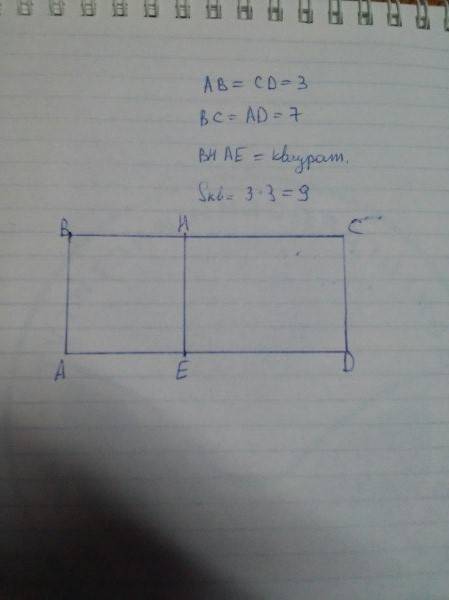 AB = CD = 3
BC = AD = 7
BH AE = квадрат.
Sкв = 3 · 3 = 9
B H C
A E D